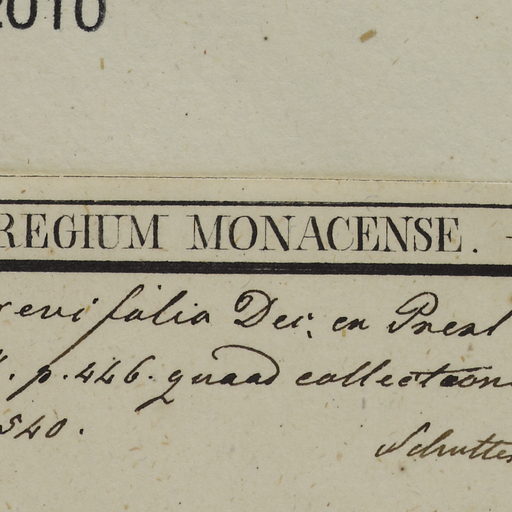 2010
REGIUM MONACENSE. -
revifolia Dec. en Presl
. p. 446. quoad collection
540.
Schultes